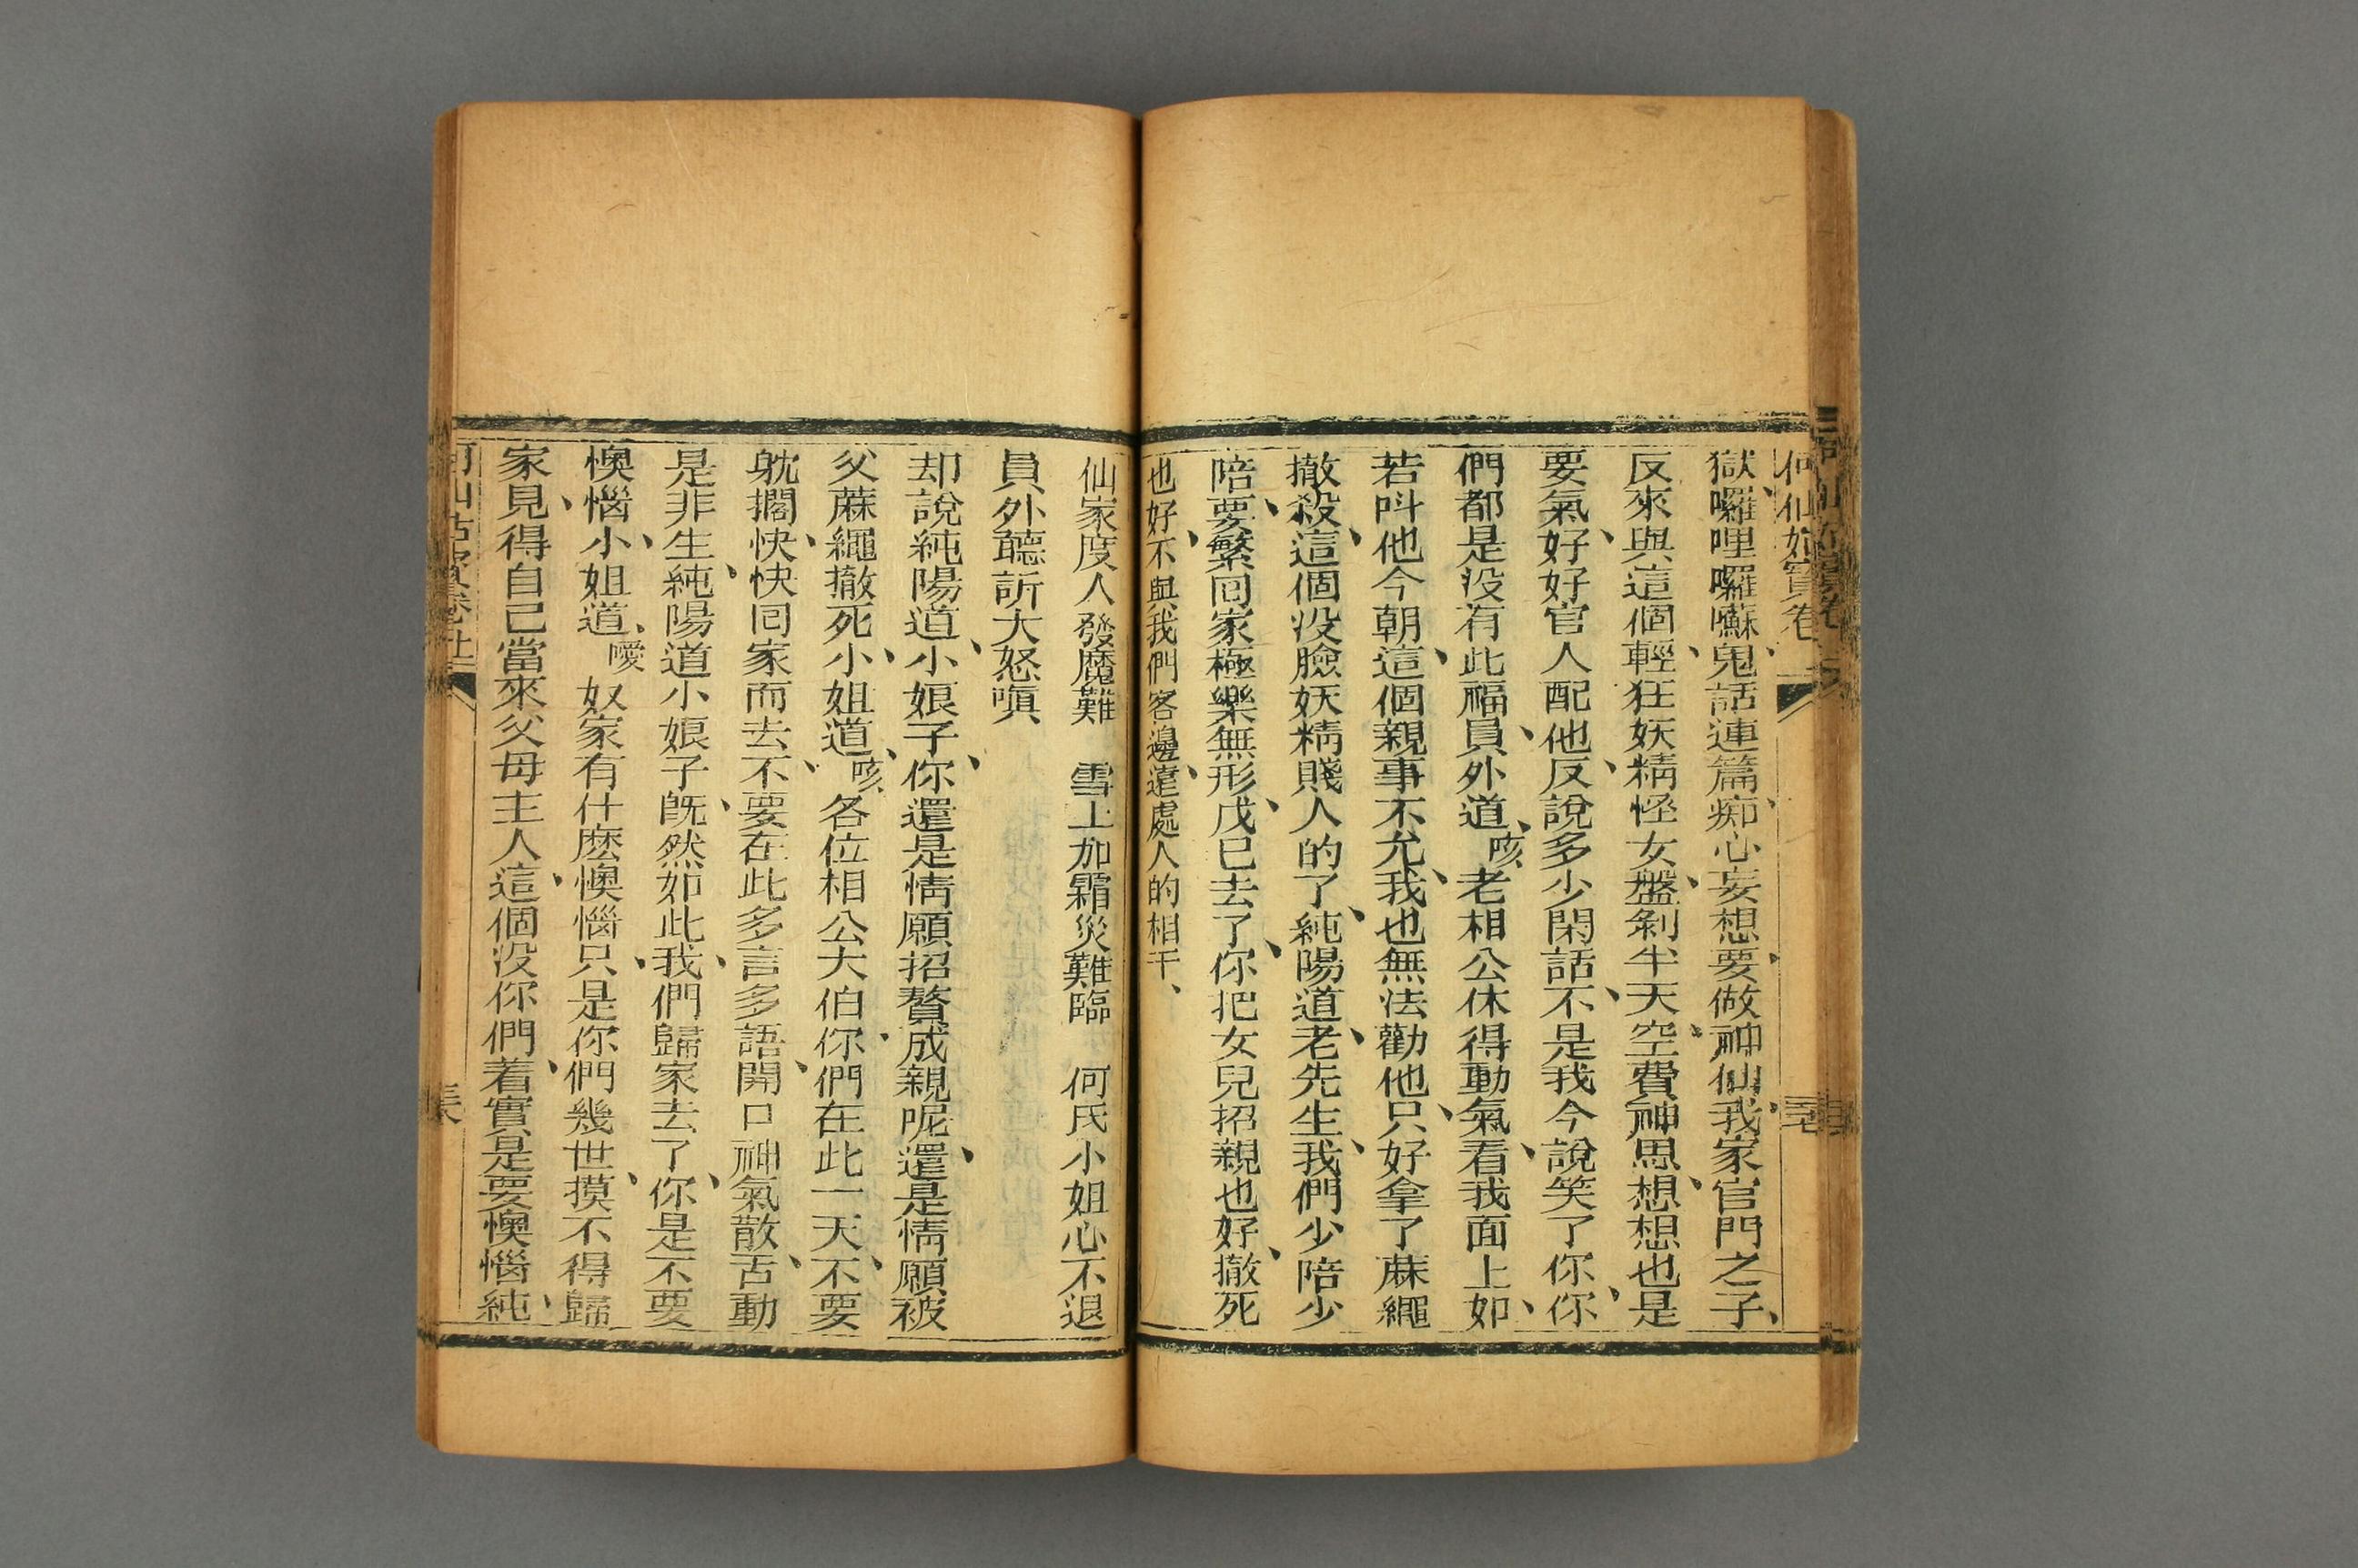 何仙姑寶卷
獄、囉哩囉囌、鬼話連篇、痴心妄想、要做神仙、我家官門之子、
反來與這個輕、狂妖精怪女、盤剝半天、空費神思、想想也是
要氣、好好官人配他、反說多少閑話、不是我今說笑了你、你
們都是没有此福、員外道、咳老相公休得動氣、看我面上、如
若呌他今朝、這個親事不允、我也無法勸他、只好拿了蔴繩
撤殺、這個没臉妖精賤人的了、純陽道、老先生、我們少陪少
陪、要繁囘家極樂無形、戊已去了、你把女兒招親也好、撤死
也好、不與我們客邊遠、處人的相干、
仙家度人發魔難　雪上加霜災難臨　何氏小姐心不退
員外聽訴大怒嗔
却說純陽道、小娘子、你還是情願招贅成親呢、還是情願被
父蔴繩撤死、小姐道、咳各位相公大伯、你們在此一天、不要
躭擱、快快囘家而去、不要在此多言多語、開口神氣散、舌動
是非生、純陽道小娘子、旣然如此、我們歸家去了、你是不要
懊惱、小姐道、嗳奴家有什麽懊惱、只是你們幾世、摸不得歸
家、見得自己當來父母主人、這個没你們、着實是要懊惱、純